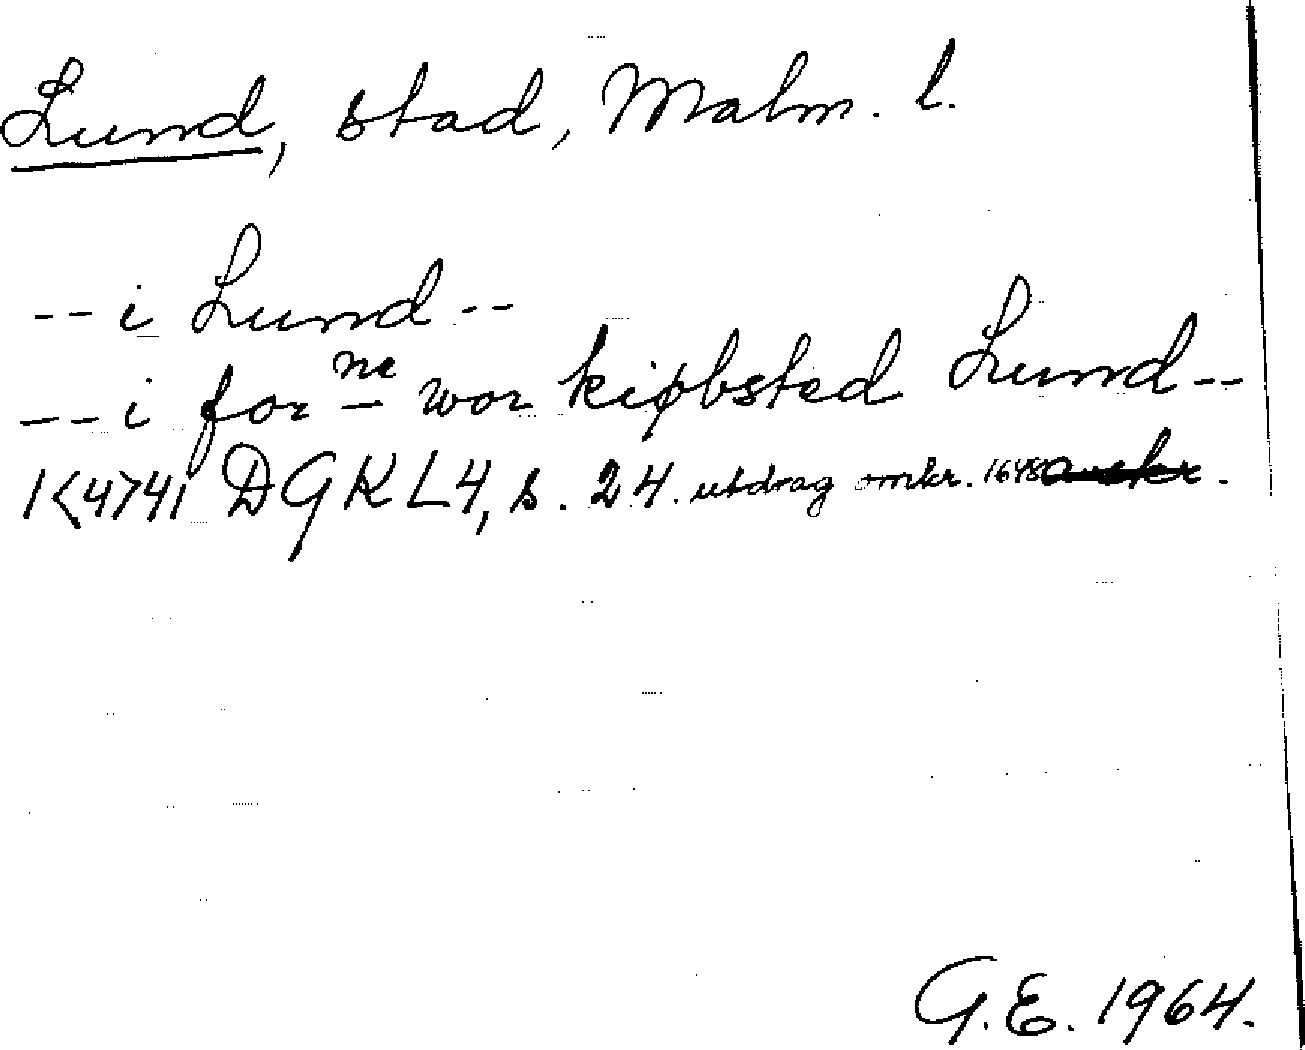 Lund, stad, Malm. l.
-- i Lund --
-- i for ne wor kiøbsted Lund --
1<4>41 DGKL4, s. 24. utdrag omkr. 1648 .
G.E. 1964.